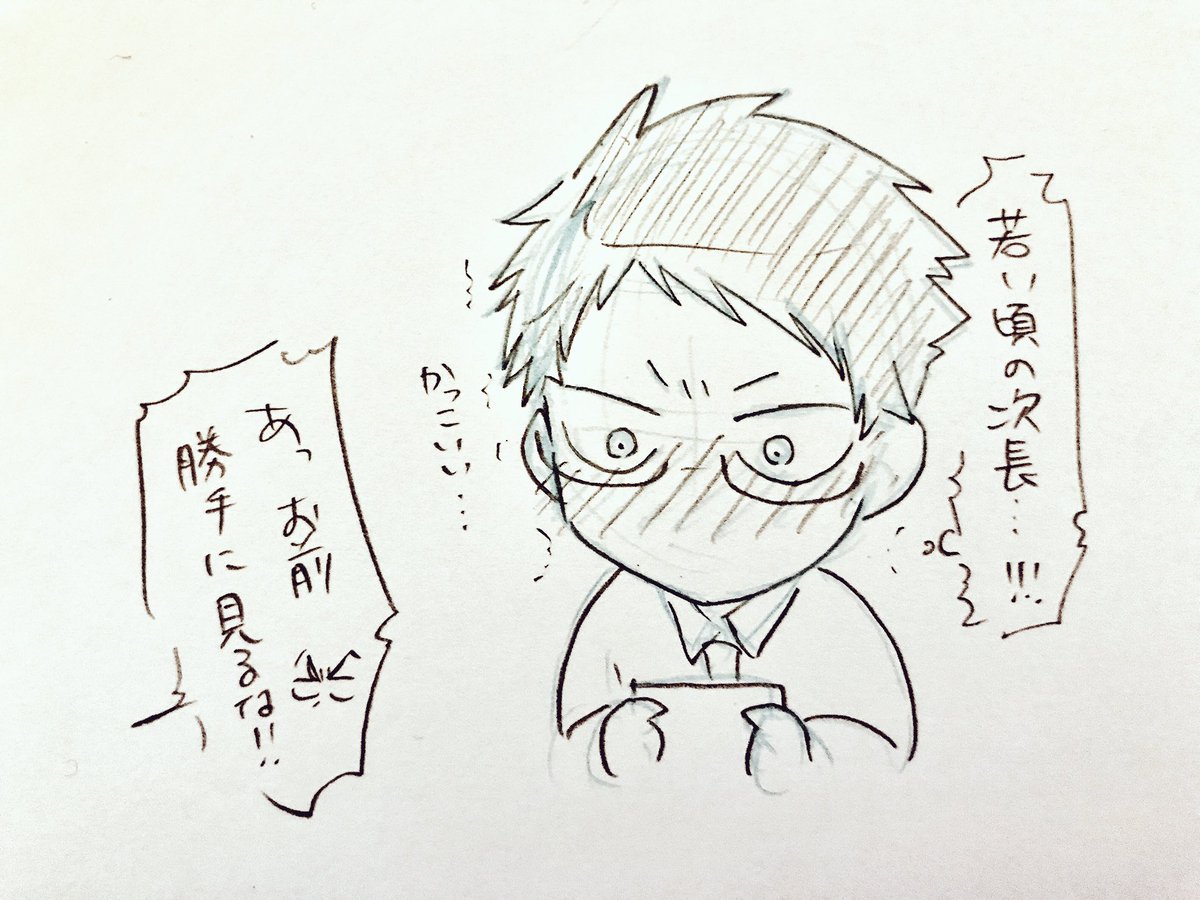 若い頃の次長…!!!
かっこいい…
あっお前
勝手に見るな!!